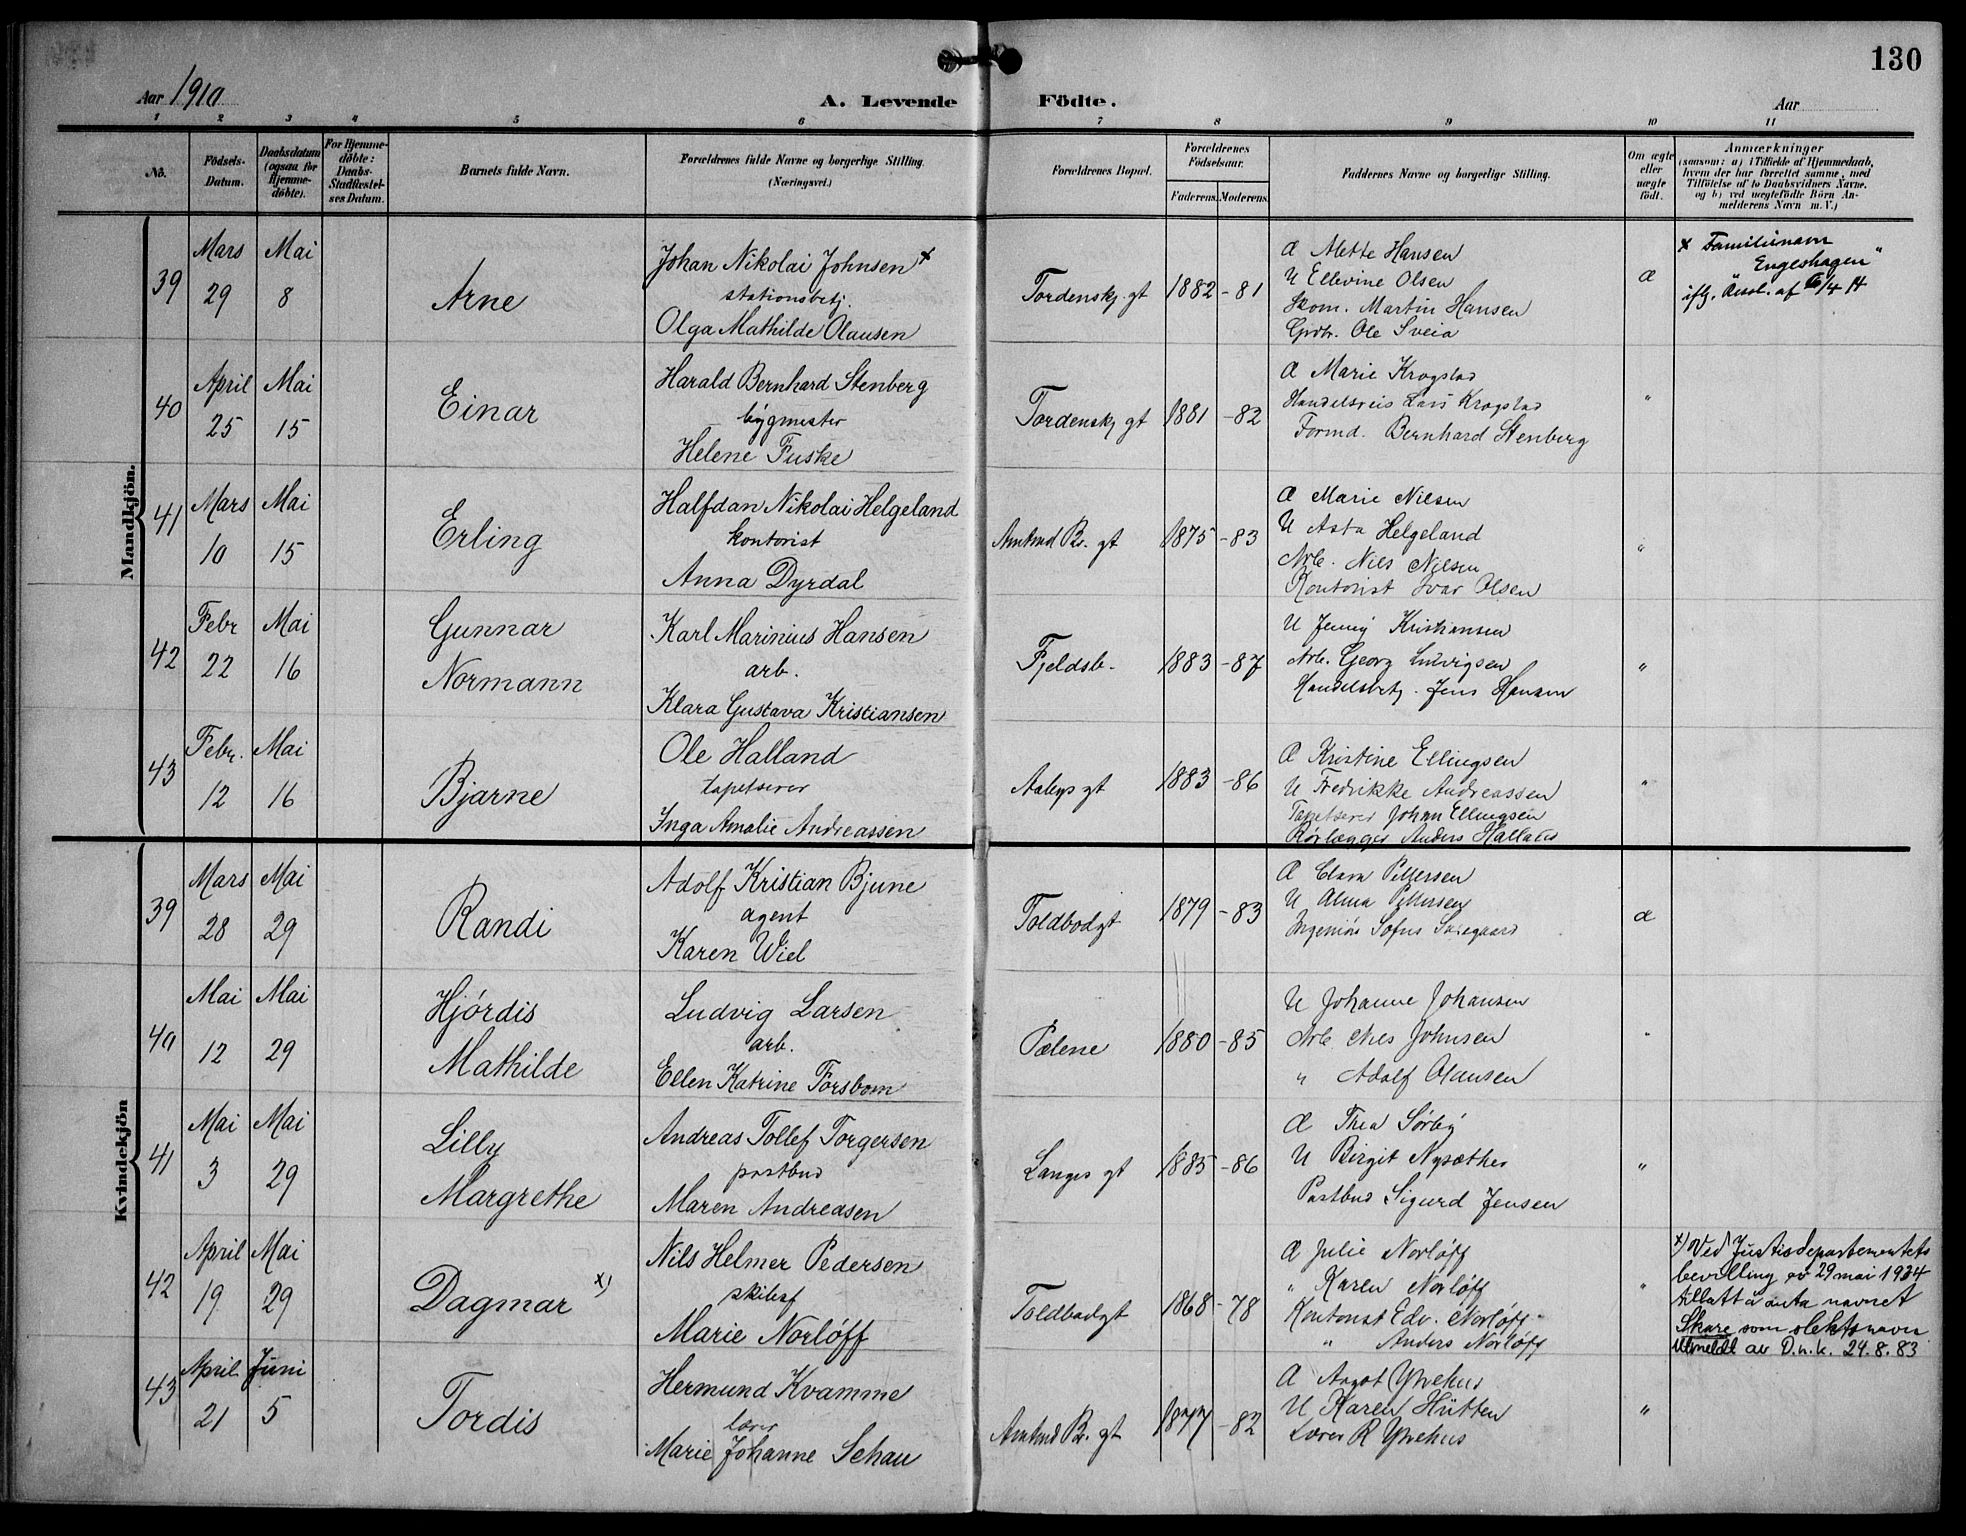 130
Aar 1910
A. Levende Födte.
Aar
1 2 3 4 5 6 7 8 9 10 11
No.
Födsels-Datum.
Daabsdatum (ogsaa for Hjemmedöbte).
For Hjemmedöbte: Daabs-Stadfæstelses Datum.
Barnets fulde Navn.
Forældrenes fulde Navne og borgerlige Stilling.
(Næringsvei.)
Forældrenes Bopæl.
Forældrenes Födselsaar.
Faderens. Moderens.
Faddernes Navne og borgerlige Stilling.
Om ægte eller uægte födt.
Anmærkninger
(saasom: a) i Tilfælde af Hjemmedaab, hvem der har forrettet samme, med Tilföielse af to Daabsvidners Navne. og b) ved uægtefödte Börn Anmelderens Navn m. V.)
Mandkjön.
39
Mars 29
Mai 8
Arne
Johan Nikolai Johnsen x
stationsbetj.
Olga Mathilde Olausen
Tordenskj. gt
1882 - 81
Æ Alette Hansen
U Ellevine Olsen
Skom. Martin Hansen
Grdbr. Ole Sveia
æ
x Familienavn
"Engeshagen"
iflg. Resol. af 6/4 14
40
April 25
Mai 15
Einar
Harald Bernhard Stenberg
bygmester
Helene Fuske
Tordenskj gt
1881 - 82
Æ Marie Krogstad
Handelsreis Lars Krogstad
Formd. Bernhard Stenberg
"
41
Mars 10
Mai 15
Erling
Halfdan Nikolai Helgeland
kontorist
Anna Dyrdal
Amtmd Br. gt
1875 - 83
Æ Marie Nilsen
U Asta Helgeland
Arb. Nils Nilsen
Kontorist Ivar Olsen
"
42
Febr 22
Mai 16
Gunnar
Normann
Karl Marinius Hansen
arb.
Klara Gustava Kristiansen
Fjeldsb.
1883 - 87
U Jenny Kristiansen
Arb. Georg Ludvigsen
Handelsbetj. Jens Hansen
"
43
Febr. 12
Mai 16
Bjarne
Ole Halland
tapetserer
Inga Amalie Andreassen
Aabys gt
1883 - 86
Æ Kristine Ellingsen
U Fredrikke Andreassen
Tapetserer Johan Ellingsen
Rørlægger Anders Halland
"
Kvindekjön
39
Mars 28
Mai 29
Randi
Adolf Kristian Bjune
agent
Karen Wiel
Toldbodgt
1879 - 83
Æ Clara Pettersen
U Alma Pettersen
Ingeniör Sofus
æ
40
Mai 12
Mai 29
Hjórdis
Mathilde
Ludvig Larsen
arb.
Ellen Katrine Forsbom
Pælene
1880 - 85
U Johanne Johansen
Arb Nils Johnsen
" Adolf Olausen
"
41
Mai 3
Mai 29
Lilly
Margrethe
Andreas Tollef Torgersen
postbud
Maren Andreasen
Langes gt
1885 - 86
Æ Thea Sørby
U Birgit Nysæther
Postbud Sigurd Jensen
"
42
April 19
Mai 29
Dagmar x)
Nils Helmer Pedersen
skibsf
Marie Norløff
Toldbodgt
1868 - 78
Æ Julie Norløff
" Karen Norløff
Kontorist Edv. Norløff
" Anders Norløff
"
x) Ved Justisdepartementets
bevilling av 29 mai 1934
tillatt å anta navnet
Skare som slektsnavn
Utmeldt av D.n.k. 29.8.83
43
April 21
Juni 5
Tordis
Hermund Kvamme
lærer
Marie Johanne Schau
Amtmd Br. gt
1877 - 82
Æ Aagot Ytrehus
U Karen Hütten
Lærer R Ytrehus
"